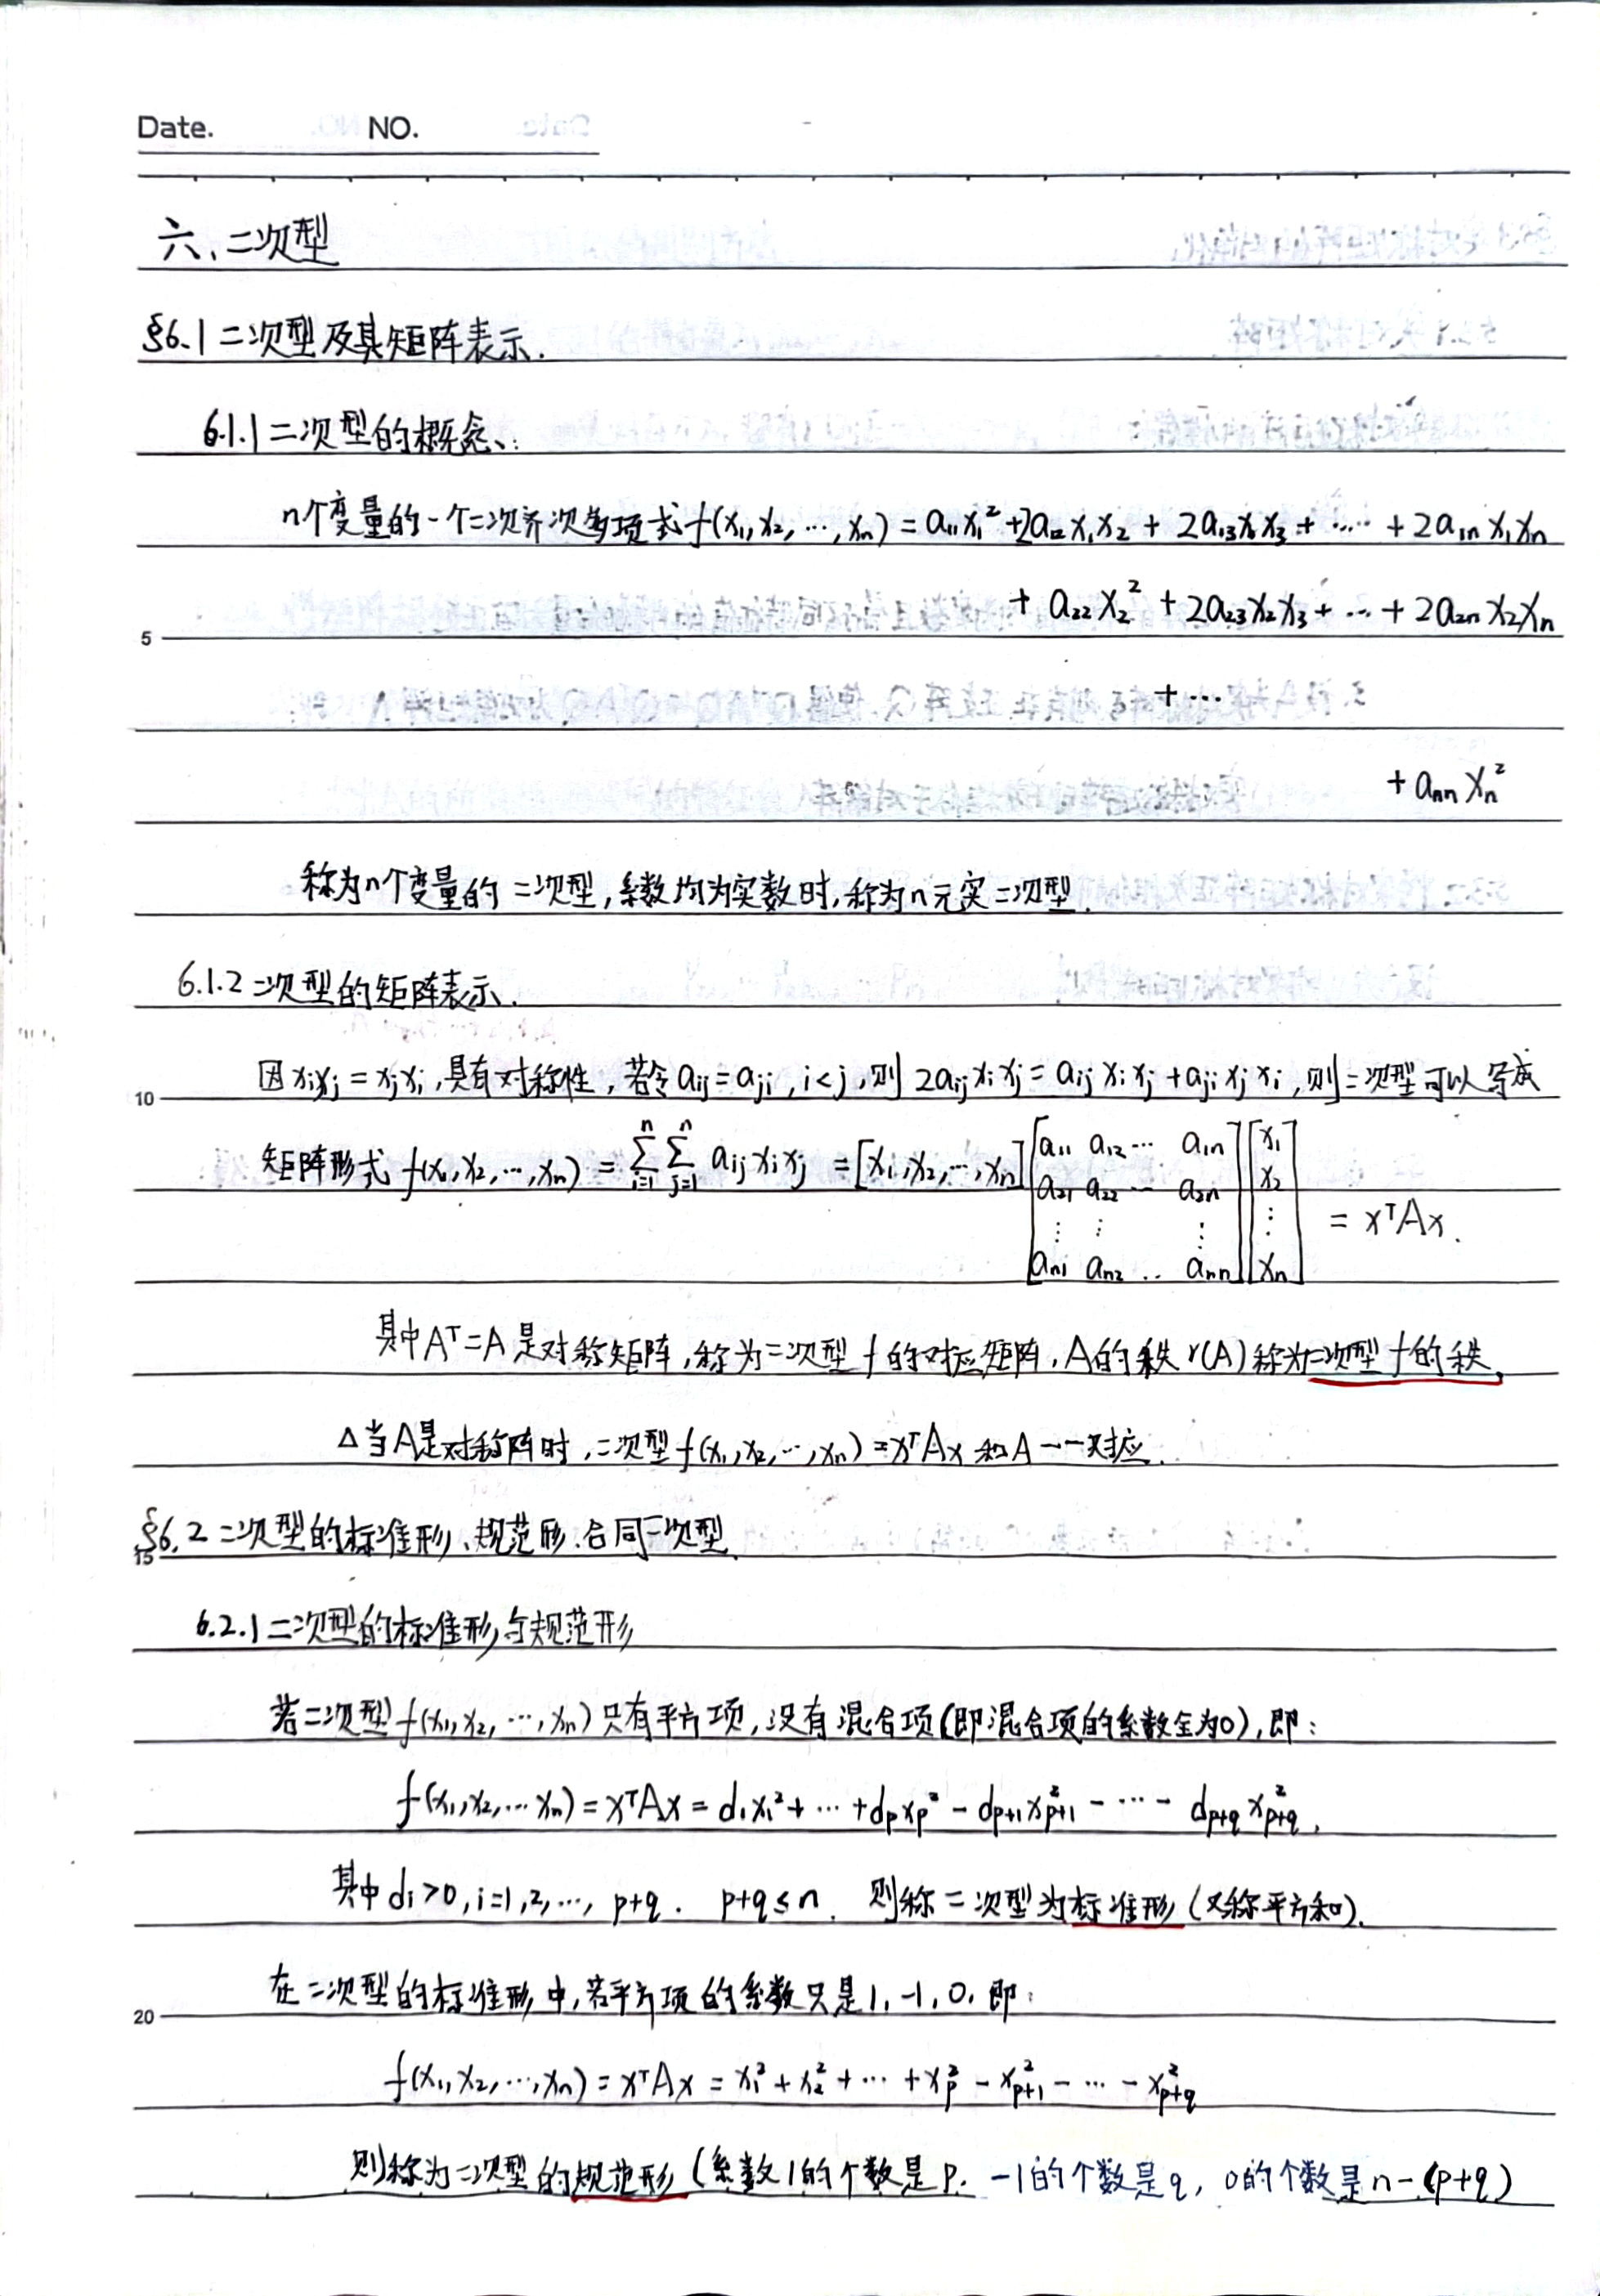 Date. NO.
六、二次型
§6.1 二次型及其矩阵表示.
6.1.1 二次型的概念:
n个变量的一个二次齐次多项式 f(x₁, x₂, ⋯, xₙ) = a₁₁x₁² + 2a₁₂x₁x₂ + 2a₁₃x₁x₃ + ⋯⋯ + 2a₁ₙx₁xₙ
+ a₂₂x₂² + 2a₂₃x₂x₃ + ⋯ + 2a₂ₙx₂xₙ
5
+ ⋯
+ aₙₙxₙ²
称为n个变量的二次型, 系数均为实数时, 称为n元实二次型.
6.1.2 二次型的矩阵表示.
因 xᵢxⱼ = xⱼxᵢ, 具有对称性, 若令 aᵢⱼ = aⱼᵢ, i < j, 则 2aᵢⱼxᵢxⱼ = aᵢⱼxᵢxⱼ + aⱼᵢxⱼxᵢ, 则二次型可以写成
10
矩阵形式 f(x₁, x₂, ⋯, xₙ) = ∑ᵢ₌₁ⁿ ∑ⱼ₌₁ⁿ aᵢⱼxᵢxⱼ = [x₁, x₂, ⋯, xₙ] [a₁₁ a₁₂ ⋯ a₁ₙ; a₂₁ a₂₂ ⋯ a₂ₙ; ⋮ ⋮ ⋮; aₙ₁ aₙ₂ ‥ aₙₙ] [x₁; x₂; ⋮; xₙ] = xᵀAx.
其中 Aᵀ = A 是对称矩阵, 称为二次型 f 的对应矩阵, A的秩 r(A) 称为二次型 f 的秩.
△当A是对称阵时, 二次型 f(x₁, x₂, ⋯, xₙ) = xᵀAx 和 A 一一对应.
§6.2 二次型的标准形、规范形、合同二次型.
15
6.2.1 二次型的标准形与规范形
若二次型 f(x₁, x₂, ⋯, xₙ) 只有平方项, 没有混合项(即混合项的系数全为0), 即:
f(x₁, x₂, ⋯ xₙ) = xᵀAx = d₁x₁² + ⋯ + dₚxₚ² − dₚ₊₁x²ₚ₊₁ − ⋯ − d_{p+q}x²_{p+q},
其中 dᵢ > 0, i=1, 2, ⋯, p+q. p+q ≤ n. 则称二次型为标准形 (又称平方和).
在二次型的标准形中, 若平方项的系数只是 1, -1, 0, 即:
20
f(x₁, x₂, ⋯, xₙ) = xᵀAx = x₁² + x₂² + ⋯ + xₚ² − x²ₚ₊₁ − ⋯ − x²_{p+q}
则称为二次型的规范形 (系数1的个数是p. -1的个数是q, 0的个数是 n-(p+q)